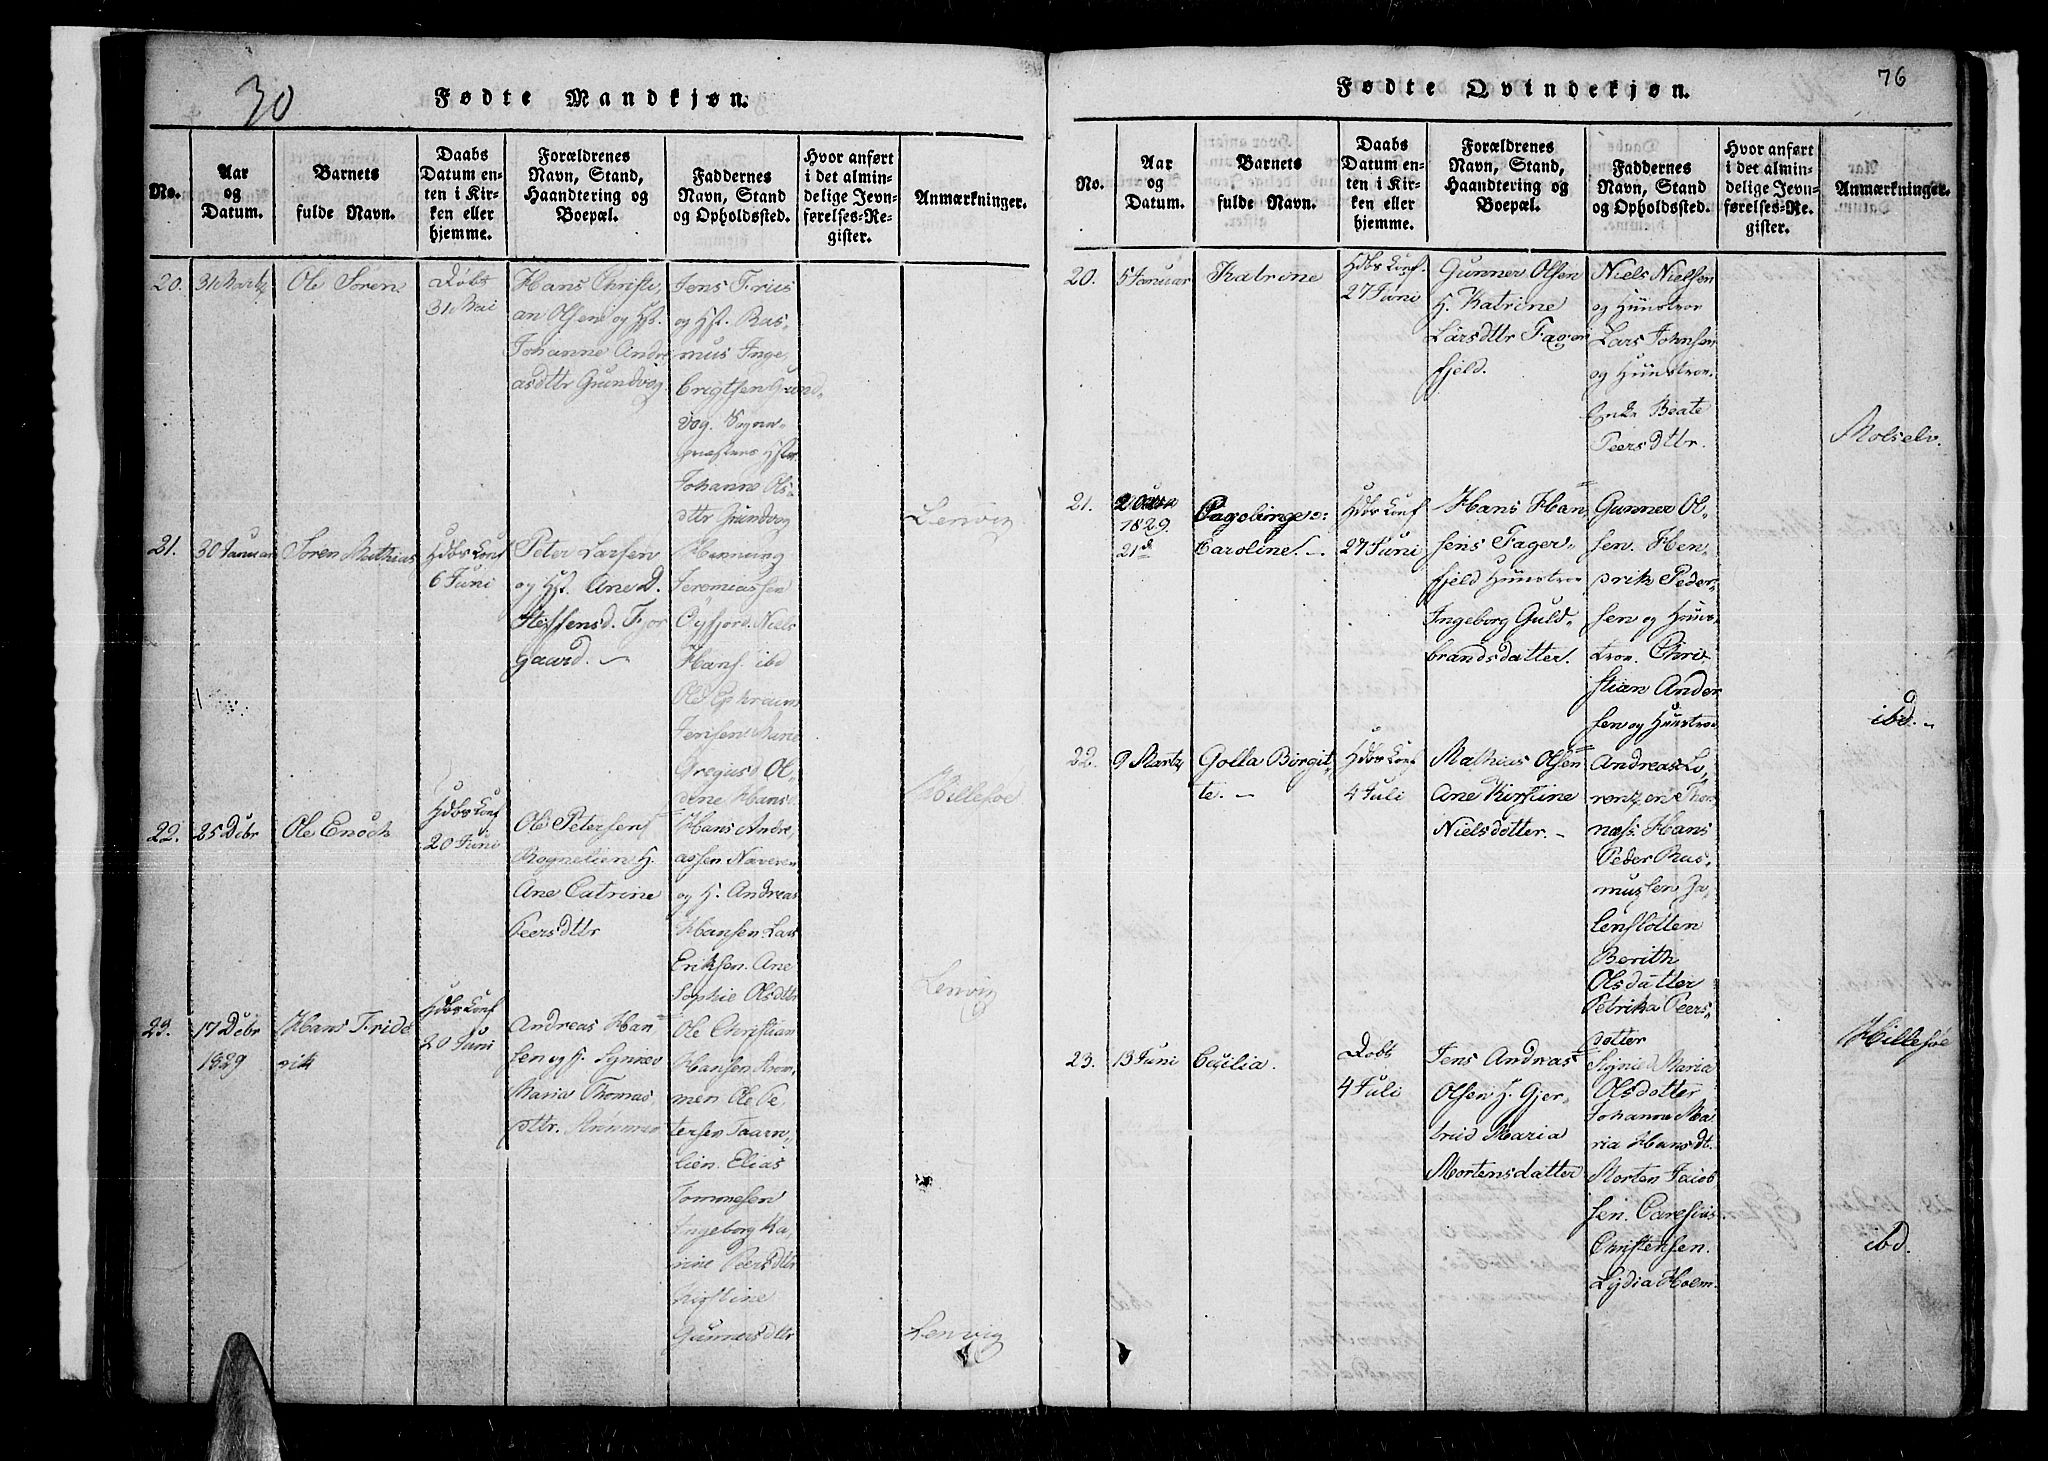 30
Fødte Mandkjøn.
No.
Aar
og
Datum.
Barnets
fulde Navn.
Daabs
Datum en-
ten i Kir-
ken eller
hjemme.
Forældrenes
Navn, Stand,
Haandtering og
Boepæl.
Faddernes
Navn, Stand
og Opholdssted.
Hvor anført
i det almin-
delige Jevn-
førelses-Re-
gister.
Anmærkninger.
20.
31 Martz
Ole Søren
Døbt
31 Mai
Hans Christi,
an Olsen og Hst.
Johanne Andre
asdttr Grundvog
Jens Friis
og Hst. Ras-
mus Inge,
brigtsen Grund-
vog.
Johanne Ols-
dttr Grundvog
Lenvig
21.
30 Januar
Søren Mathias
Hdbr Conf
6 Juni
Peter Larsen
og Hst. Ane D.
Steffensd. Fjor
gaard. ~
Henning
Jeremiassen
Oyfjord. Niels
Hans. ibd
Ole Ephraim
Jensen Marie
Gregusd. Ol-
dine Hansd.
Hillesøe
22.
25 Debr
Ole Enoch
Hdbr Conf
20 Juni
Ole Petersen
Rognelien H.
Ane Catrine
Peersdttr
Hans Andre,
assen Naveren
og H. Andreas
Hansen. Lars
Eriksen. Ane
Sophie Olsdttr
Lenvig
23.
17 Debr
1829
Hans Fride
rik
Hdbr Conf
20 Juni
Andreas Han=
sen og H. Synnev
Maria Thomas
dttr.
Ole Christian
Hansen Strøm,
men Ole Pe,
tersen Taarn,
lien. Elias
Tommesen
Ingeborg Ka,
rine Peersdttr
Kirstine
Gunnersdttr
Lenvig
76
Fødte Qvindekjøn.
No.
Aar
og
Datum.
Barnets
fulde Navn.
Daabs
Datum en-
ten i Kir-
ken eller
hjemme.
Forældrenes
Navn, Stand,
Haandtering og
Boepæl.
Faddernes
Navn, Stand
og Opholdssted.
Hvor anført
i det almin-
delige Jevn-
førelses-Re-
gister.
Anmærkninger.
20.
5 Januar
Katrine
Hdbr Conf.
27 Juni
Gunner Olsen
H. Katrine
Larsdttr Fager
fjeld.
Niels Nielsen
og Huustroe
Lars Johnsen
og Huustroe.
Enke Beate
Peersdttr.
Molselv.
21.
1829.
21d
Caroline. ~
Hdbr Conf
27 Juni
Hans Han=
sens Fager-
fjeld Huustroe
Ingeborg Guld-
brandsdatter.
Gunner Ol-
sen. Hen,
drik Peder-
sen og Huus-
troe. Chri-
stian Ander
sen og Huustroe
ibd. ~
22.
9 Martz
Golla Birgit-
te. ~
Hdbr Conf
4 Juli
Mathias Olsen
Ane Kirstine
Nielsdotter. ~
Andreas Lo,
rentzen Thor
næss. Hans
Peder Ras-
mussen Ja,
lenslotten
Berith
Olsdatter
Petrika Peers-
dotter
Hillesøe
23.
13 Juni
Cecilia.
Døbt
4 Juli
Jens Andreas
Olsen H. Gjer-
trud Maria
Mortensdatter
Signe Maria
Olsdotter
Johanna Ma
ria Hansdt.
Morten Jacob
sen. Caresius
Christensen.
Lydia Holm.
ibd.